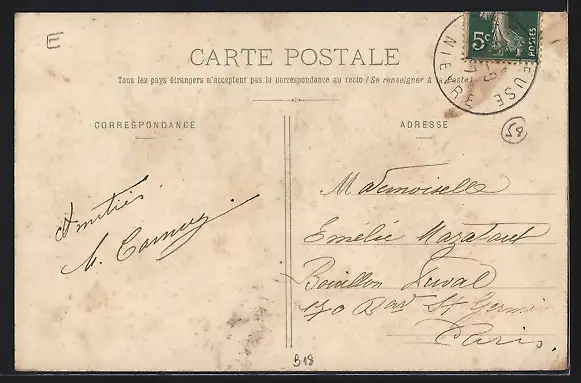 E
CARTE POSTALE
5c
POSTES
NIÈVRE
EUSE
Tous les pays étrangers n'acceptent pas la correspondance au recto (Se renseigner à la Poste)
CORRESPONDANCE
ADRESSE
59
Amitiés
M.
Mademoiselle
Emélie Mazataut
Bouillon Duval
170 Bard St Germain
Paris.
B18